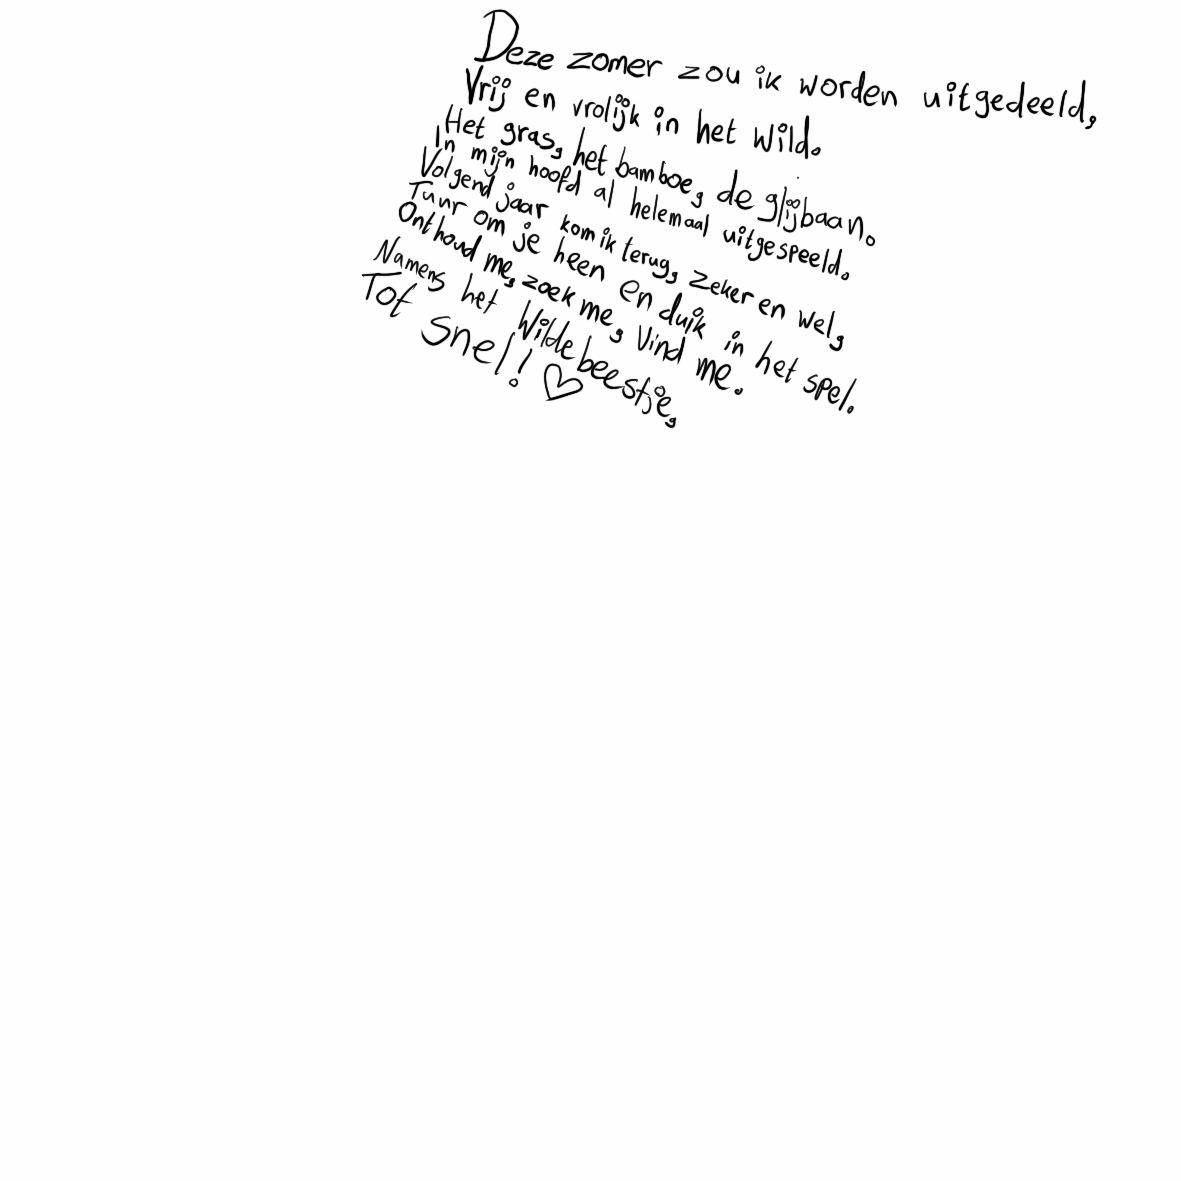 Deze zomer zou ik worden uitgedeeld,
Vrij en vrolijk in het wild.
Het gras, het bamboe, de glijbaan.
In mijn hoofd al helemaal uitgespeeld.
Volgend jaar kom ik terug, zeker en wel,
Tuur om je heen en duik in het spel.
Onthoud me, zoek me, vind me.
Namens het Wildebeestje,
Tot snel! ♡